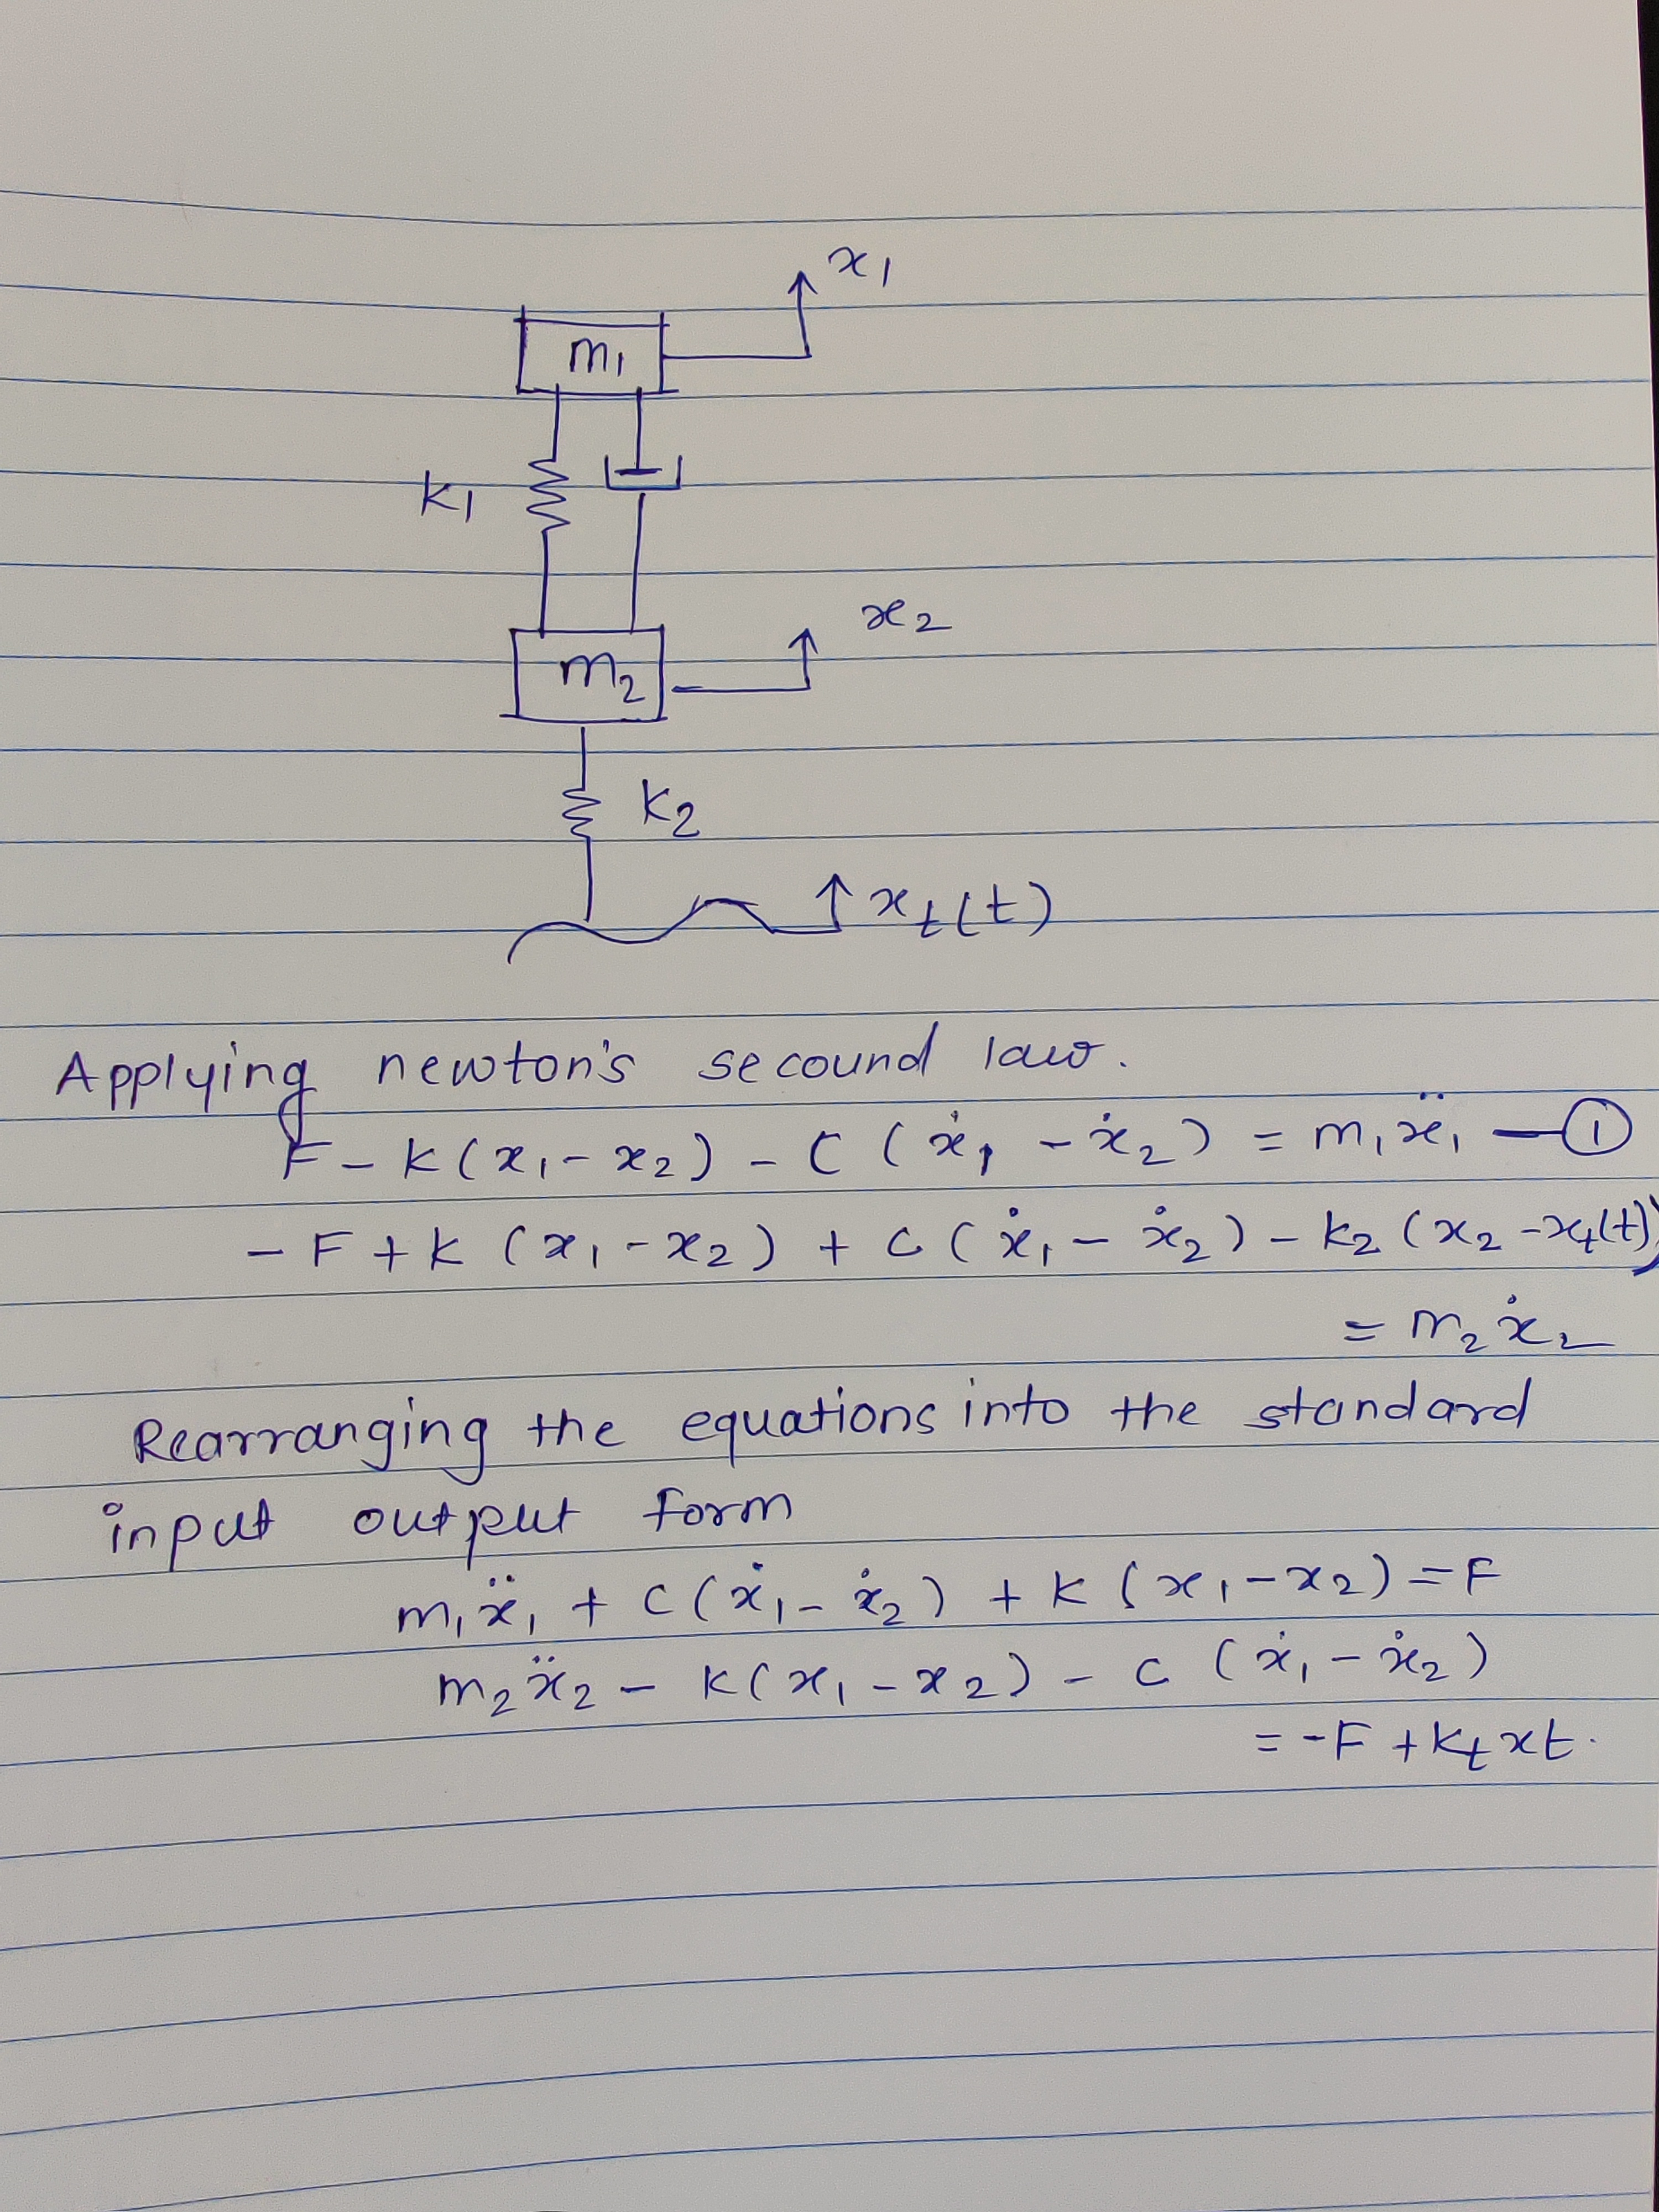 x₁
m₁
K₁
x₂
m₂
K₂
xₜ(t)
Applying newton's secound law.
F - K(x₁ - x₂) - C (ẋ₁ - ẋ₂) = m₁ẍ₁ — ①
- F + K (x₁ - x₂) + C (ẋ₁ - ẋ₂) - K₂ (x₂ - xₜ(t))
= m₂ẋ₂
Rearranging the equations into the standard
input output form
m₁ẍ₁ + C(ẋ₁ - ẋ₂) + K (x₁ - x₂) = F
m₂ẍ₂ - K(x₁ - x₂) - C (ẋ₁ - ẋ₂)
= -F + Kₜ xt.